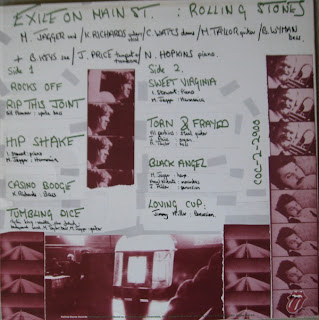 EXILE ON MAIN ST. : ROLLING STONES
M. JAGGER /K. RICHARDS /C. WATTS drums /M. TAYLOR guitar /B. WYMAN
bass.
+ B. KEYS sax /J. PRICE trumpet
trombone /N. HOPKINS piano.
Side 1
ROCKS OFF
RIP THIS JOINT
Bill Plummer : upright bass
HIP SHAKE
I. Stewart : piano
M. Jagger : Harmonica
CASINO BOOGIE
K. Richards : Bass
TUMBLING DICE
M. Taylor : Bass M. Jagger : guitar
Side 2
SWEET VIRGINIA
I. Stewart : Piano
M. Jagger : Harmonica
TORN & FRAYED
Al Perkins : Steel guitar
J. Price : Organ
M. Taylor : Bass
BLACK ANGEL
M. Jagger : harp
marimba
J. Miller : percussion
LOVING CUP.
Jimmy Miller : Percussion
COC-2-2900